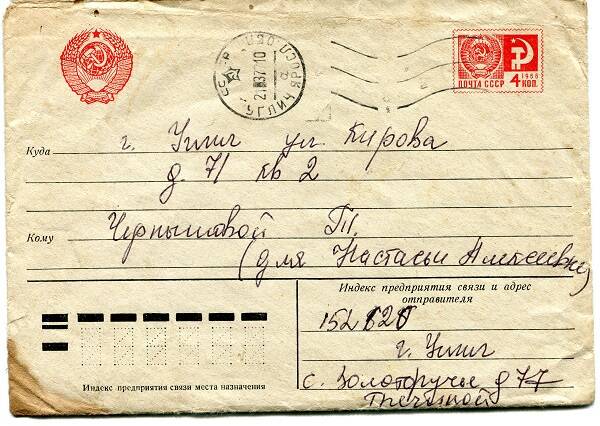 СССР ЯРОСЛ. ОБЛ.
УГЛИЧ
1966
ПОЧТА СССР 4 КОП.
Куда г. Углич ул Кирова
д. 71 кв 2
Кому Чернышовой Т.
(для Настасьи Алексеевны)
Индекс предприятия связи и адрес
отправителя
152620
г. Углич
с. Золоторучье д 77
Индекс предприятия связи места назначения